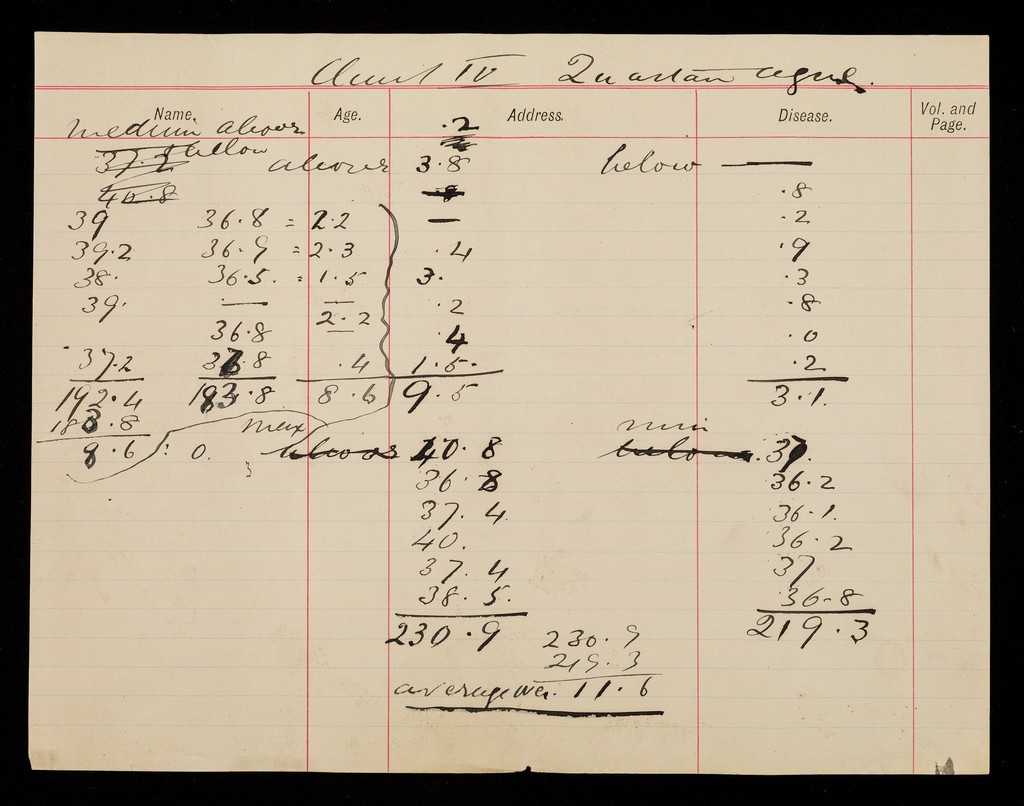 Chart IV Quartan ague.
Name. Age. Address. Disease. Vol. and Page.
medium above .2
37.2 below above 3.8 below —
40.8 .8 .8
39 36.8 = 2.2 — .2
39.2 36.9 = 2.3 .4 .9
38. 36.5. = 1.5 3. .3
39. — — .2 .8
36.8 2.2 .4 .0
37.2 36.8 .4 1.5. .2
192.4 183.8 8.6 9.5 3.1.
183.8 max min
8.6 : 0. above 40.8 below 37.
36.8 36.2
37.4 36.1.
40. 36.2
37.4 37
38.5. 36.8
230.9 230.9 219.3
219.3
average 11.6